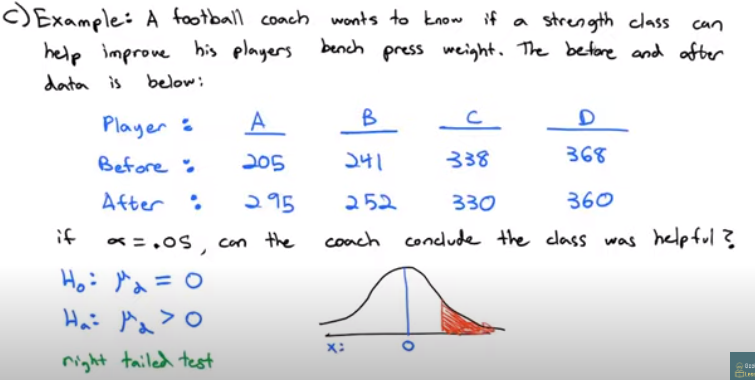 C) Example: A football coach wants to know if a strength class can
help improve his players bench press weight. The before and after
data is below:
Player : A B C D
Before : 205 241 338 368
After : 295 252 330 360
if α = .05, can the coach conclude the class was helpful?
H₀: μd = 0
Hₐ: μd > 0
right tailed test
x: 0